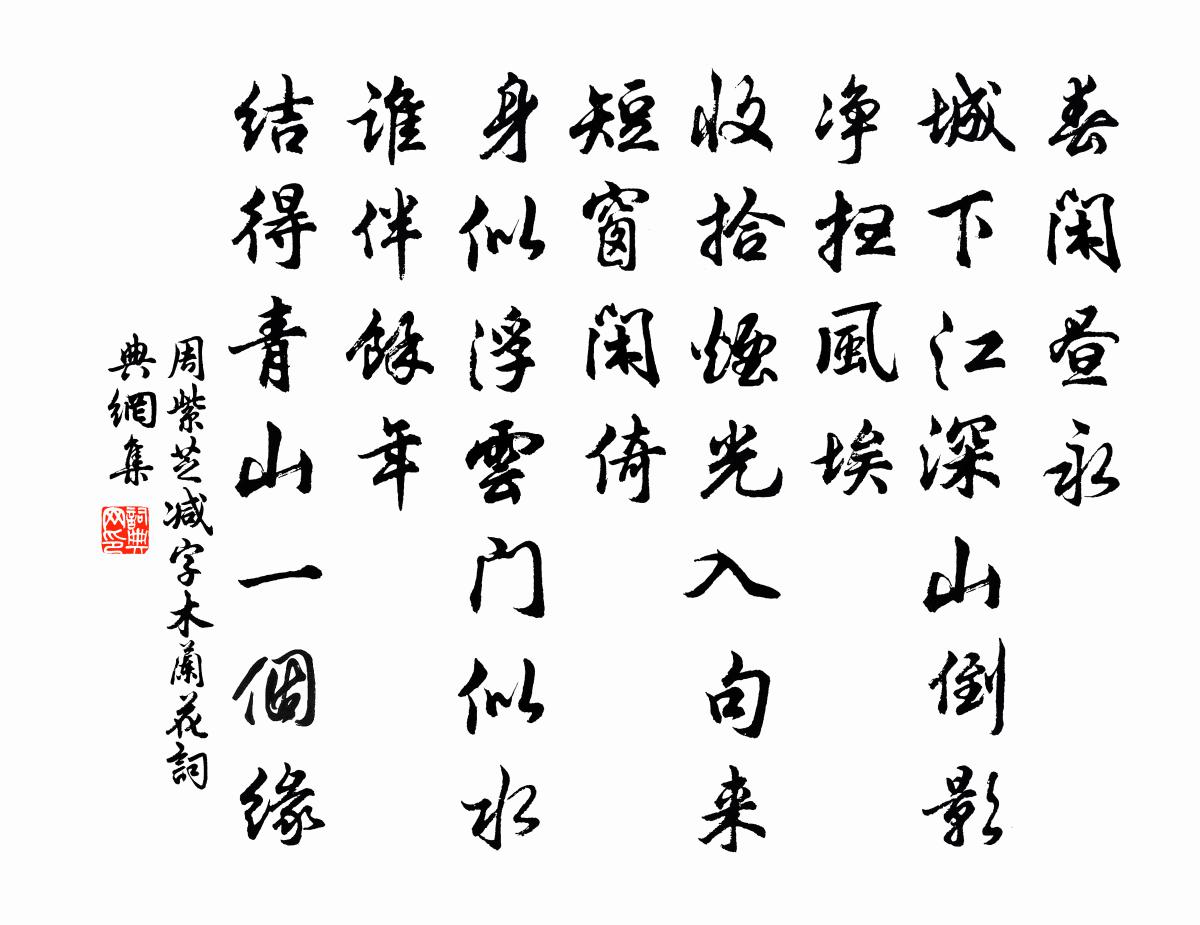 春閑昼永
城下江深山倒影
净扫風埃
收拾煙光入句来
短窗閑倚
身似浮雲门似水
谁伴餘年
结得青山一個缘
周紫芝减字木蘭花詞
典網集
詞典网印